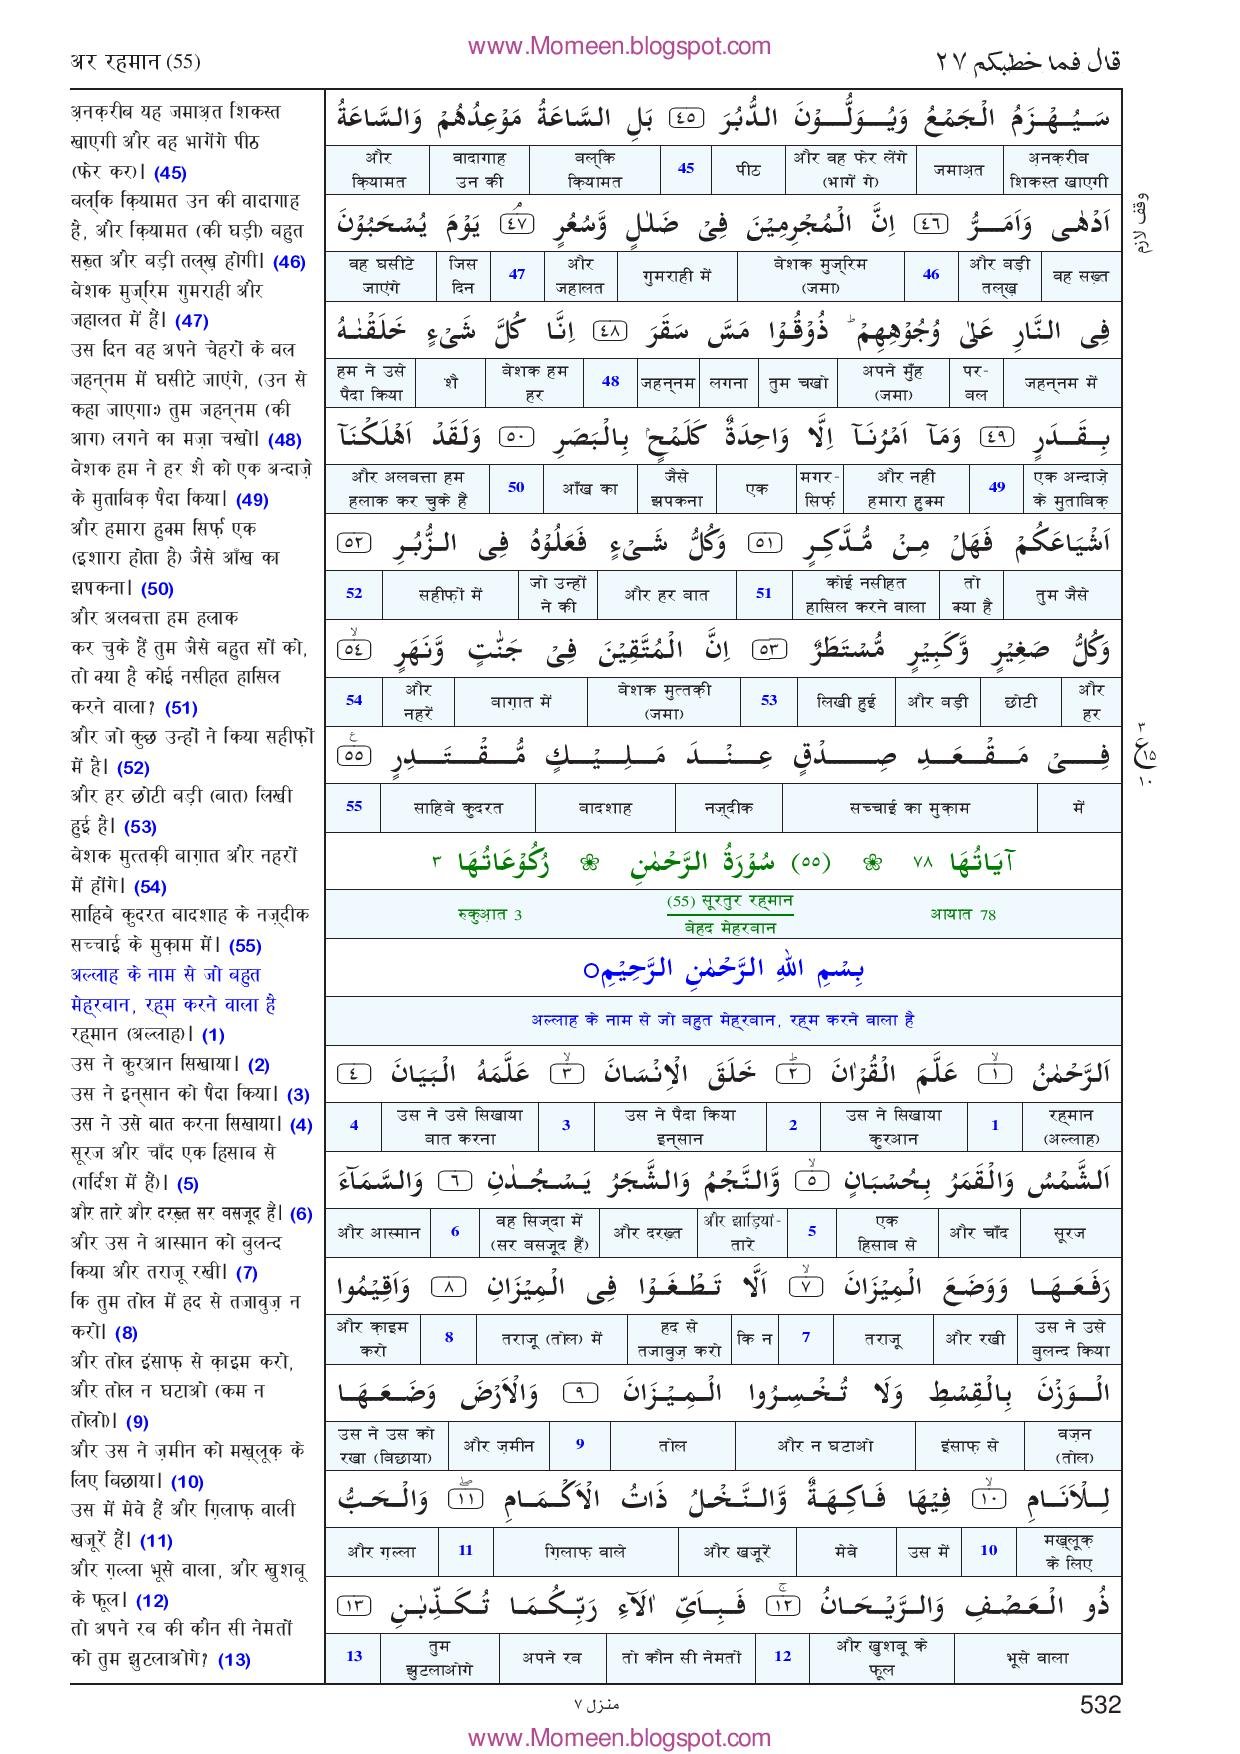 www.Momeen.blogspot.com
अर रहमान (55)
قال فما خطبكم ٢٧
अ़नक़रीब यह जमाअ़त शिकस्त
खाएगी और वह भागेंगे पीठ
(फेर कर)। (45)
बल्कि क़ियामत उन की वादागाह
है, और क़ियामत (की घड़ी) बहुत
सख़्त और बड़ी तल्ख़ होगी। (46)
बेशक मुज्रिम गुमराही और
जहालत में हैं। (47)
उस दिन वह अपने चेहरों के बल
जहन्नम में घसीटे जाएंगे, (उन से
कहा जाएगाः) तुम जहन्नम (की
आग) लगने का मज़ा चखो। (48)
बेशक हम ने हर शै को एक अन्दाज़े
के मुताबिक़ पैदा किया। (49)
और हमारा हुक्म सिर्फ़ एक
(इशारा होता है) जैसे आँख का
झपकना। (50)
और अलबत्ता हम हलाक
कर चुके हैं तुम जैसे बहुत सों को,
तो क्या है कोई नसीहत हासिल
करने वाला? (51)
और जो कुछ उन्हों ने किया सहीफ़ों
में है। (52)
और हर छोटी बड़ी (बात) लिखी
हुई है। (53)
बेशक मुत्तक़ी बाग़ात और नहरों
में होंगे। (54)
साहिबे कुदरत बादशाह के नज़्दीक
सच्चाई के मुक़ाम में। (55)
अल्लाह के नाम से जो बहुत
मेह्रबान, रह्म करने वाला है
रह्मान (अल्लाह)। (1)
उस ने कुरआन सिखाया। (2)
उस ने इन्सान को पैदा किया। (3)
उस ने उसे बात करना सिखाया। (4)
सूरज और चाँद एक हिसाब से
(गर्दिश में हैं)। (5)
और तारे और दरख़्त सर बसजूद हैं। (6)
और उस ने आस्मान को बुलन्द
किया और तराजू रखी। (7)
कि तुम तोल में हद से तजावुज़ न
करो। (8)
और तोल इंसाफ़ से क़ाइम करो,
और तोल न घटाओ (कम न
तोलो)। (9)
और उस ने ज़मीन को मख़्लूक़ के
लिए बिछाया। (10)
उस में मेवे हैं और ग़िलाफ़ वाली
खजूरें हैं। (11)
और ग़ल्ला भूसे वाला, और ख़ुशबू
के फूल। (12)
तो अपने रब की कौन सी नेमतों
को तुम झुटलाओगे? (13)
سَيُهْزَمُ الْجَمْعُ وَيُوَلُّوْنَ الدُّبُرَ ٤٥ بَلِ السَّاعَةُ مَوْعِدُهُمْ وَالسَّاعَةُ
और | वादागाह | बल्कि | 45 | पीठ | और वह फेर लेंगे | जमाअ़त | अ़नक़रीब
क़ियामत | उन की | क़ियामत | (भागें गे) | शिकस्त खाएगी
اَدْهٰى وَاَمَرُّ ٤٦ اِنَّ الْمُجْرِمِيْنَ فِيْ ضَلٰلٍ وَّسُعُرٍ ٤٧ يَوْمَ يُسْحَبُوْنَ
وقف لازم
वह घसीटे | जिस | 47 | और | गुमराही में | बेशक मुज्रिम | 46 | और बड़ी | वह सख़्त
जाएंगे | दिन | जहालत | (जमा) | तल्ख़
فِي النَّارِ عَلٰى وُجُوْهِهِمْ ۭ ذُوْقُوْا مَسَّ سَقَرَ ٤٨ اِنَّا كُلَّ شَيْءٍ خَلَقْنٰهُ
हम ने उसे | शै | बेशक हम | 48 | जहन्नम | लगना | तुम चखो | अपने मुँह | पर- | जहन्नम में
पैदा किया | हर | (जमा) | बल
بِقَدَرٍ ٤٩ وَمَآ اَمْرُنَآ اِلَّا وَاحِدَةٌ كَلَمْحٍۢ بِالْبَصَرِ ٥٠ وَلَقَدْ اَهْلَكْنَآ
और अलबत्ता हम | 50 | आँख का | जैसे | एक | मगर- | और नहीं | 49 | एक अन्दाज़े
हलाक कर चुके हैं | झपकना | सिर्फ़ | हमारा हुक्म | के मुताबिक़
اَشْيَاعَكُمْ فَهَلْ مِنْ مُّدَّكِرٍ ٥١ وَكُلُّ شَيْءٍ فَعَلُوْهُ فِي الزُّبُرِ ٥٢
52 | सहीफ़ों में | जो उन्हों | और हर बात | 51 | कोई नसीहत | तो | तुम जैसे
ने की | हासिल करने वाला | क्या है
وَكُلُّ صَغِيْرٍ وَّكَبِيْرٍ مُّسْتَطَرٌ ٥٣ اِنَّ الْمُتَّقِيْنَ فِيْ جَنّٰتٍ وَّنَهَرٍ ٥٤
54 | और | बाग़ात में | बेशक मुत्तक़ी | 53 | लिखी हुई | और बड़ी | छोटी | और
नहरें | (जमा) | हर
فِيْ مَقْعَدِ صِدْقٍ عِنْدَ مَلِيْكٍ مُّقْتَدِرٍ ٥٥
٣ ع ١٥ ١٠
55 | साहिबे कुदरत | बादशाह | नज़्दीक | सच्चाई का मुक़ाम | में
آيَاتُهَا ٧٨ ❀ (٥٥) سُوْرَةُ الرَّحْمٰنِ ❀ رُكُوْعَاتُهَا ٣
रुकुआ़त 3 | (55) सूरतुर रह्मान | आयात 78
बेहद मेहरबान
بِسْمِ اللهِ الرَّحْمٰنِ الرَّحِيْمِ○
अल्लाह के नाम से जो बहुत मेह्रबान, रह्म करने वाला है
اَلرَّحْمٰنُ ١ عَلَّمَ الْقُرْاٰنَ ٢ خَلَقَ الْاِنْسَانَ ٣ عَلَّمَهُ الْبَيَانَ ٤
4 | उस ने उसे सिखाया | 3 | उस ने पैदा किया | 2 | उस ने सिखाया | 1 | रह्मान
बात करना | इन्सान | कुरआन | (अल्लाह)
اَلشَّمْسُ وَالْقَمَرُ بِحُسْبَانٍ ٥ وَّالنَّجْمُ وَالشَّجَرُ يَسْجُدٰنِ ٦ وَالسَّمَآءَ
और आस्मान | 6 | वह सिज्दा में | और दरख़्त | और झाड़ियां- | 5 | एक | और चाँद | सूरज
(सर बसजूद हैं) | तारे | हिसाब से
رَفَعَهَا وَوَضَعَ الْمِيْزَانَ ٧ اَلَّا تَطْغَوْا فِي الْمِيْزَانِ ٨ وَاَقِيْمُوا
और क़ाइम | 8 | तराजू (तोल) में | हद से | कि न | 7 | तराजू | और रखी | उस ने उसे
करो | तजावुज़ करो | बुलन्द किया
الْوَزْنَ بِالْقِسْطِ وَلَا تُخْسِرُوا الْمِيْزَانَ ٩ وَالْاَرْضَ وَضَعَهَا
उस ने उस को | और ज़मीन | 9 | तोल | और न घटाओ | इंसाफ़ से | वज़न
रखा (बिछाया) | (तोल)
لِلْاَنَامِ ١٠ فِيْهَا فَاكِهَةٌ وَّالنَّخْلُ ذَاتُ الْاَكْمَامِ ١١ وَالْحَبُّ
और ग़ल्ला | 11 | ग़िलाफ़ वाले | और खजूरें | मेवे | उस में | 10 | मख़्लूक़
के लिए
ذُو الْعَصْفِ وَالرَّيْحَانُ ١٢ فَبِاَيِّ اٰلَآءِ رَبِّكُمَا تُكَذِّبٰنِ ١٣
13 | तुम | अपने रब | तो कौन सी नेमतों | 12 | और ख़ुशबू के | भूसे वाला
झुटलाओगे | फूल
منزل ٧
532
www.Momeen.blogspot.com